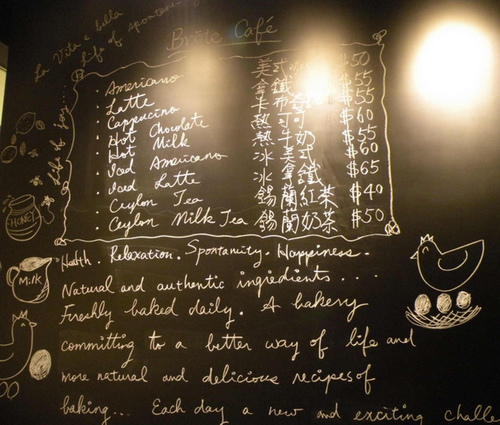 La Vita è bella
life of spontani
Brite Café
Americano 美式 $50
Latte 拿鐵 $55
Cappucino 卡布奇 $55
Hot Chocolate 熱可可 $60
Hot Milk 熱牛奶 $55
Iced Americano 冰美式 $60
Iced Latte 冰拿鐵 $65
Ceylon Tea 錫蘭紅茶 $40
Ceylon Milk Tea 錫蘭奶茶 $50
life of joy...
HONEY
MILK
Health.. Relaxation. Spontanity. Happiness.
Natural and authentic ingredients....
Freshly baked daily. A bakery
committing to a better way of life and
more natural and delicious recipes of
baking... Each day a new and exciting challe